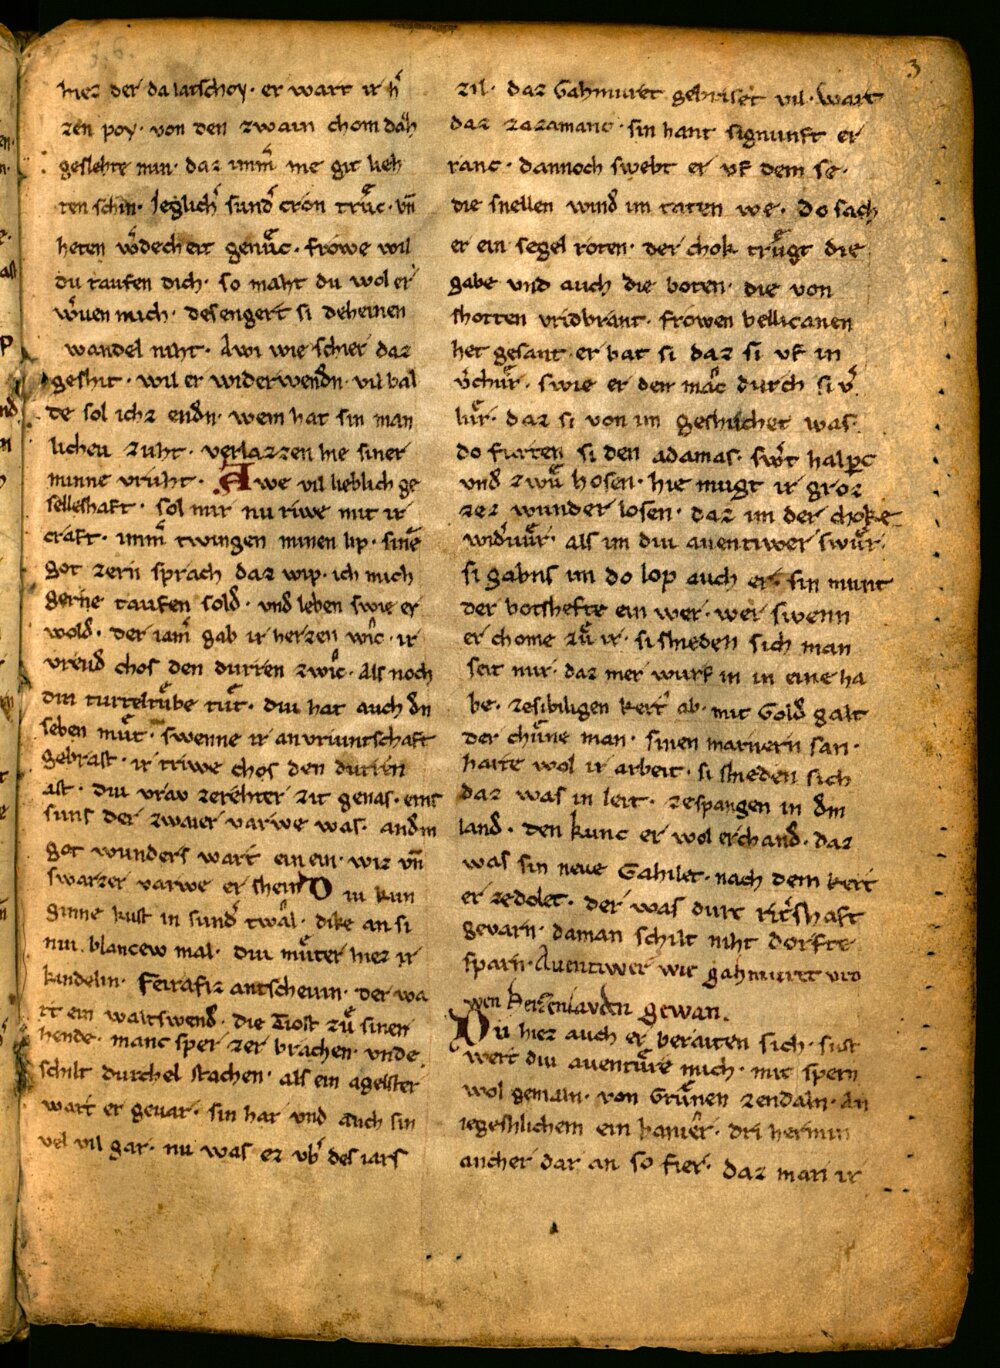 3
hiez der da latschoy · er wart ir h͛
zen poy · von den zwain chom dah
geslehte min · daz imm̄ me git lieh
ten schin · Jeglich͛ sund͛ cron trůc · vn̄
heten w͛dechert genůc · frowe wil
du taufen dich · so maht du wol er
w͛uen mich · des engert si deheinen
wandel niht · Awi wie schier daz
geshit · wil er widerwendn̄ · vil bal
de sol ichz endn̄ · wem hat sin man
licheu zuht · verlazzen hie siner
minne vruht · Awe vil lieblich ge
selleshaft · sol mir nu riwe mit ir
craft · imm̄ twingen minen lip · sinē
got zern sprach daz wip · ich mich
gerne taufen sold̄ · vnd̄ leben swie er
wold̄ · der iam̄ gab ir herzen wic · ir
vreud̄ chos den durren zwic · als noch
diu turteltůbe tůt · diu hat auch dn̄
selben můt · swenne ir an vriuntschaft
gebrast · ir triwe chos den durren
ast · diu vrav zerehter zit genas · eins
suns der zwaier varwe was · andm̄
got wunders wart ein ein · wiz vn̄
swarzer varwe er shein Diu kun
ginne kust in sund͛ twal · dike an si
niu blancew mal · diu můter hiez ir
kindelin · Feirafiz antschevin · der wa
rt ein waltswend̄ · die Tiost zů sinen
hende · manc sper zer brachen · vnde
schilt durchel stachen · als ein agelster
wart er gevar · sin har vnd auch sin
vel vil gar · nu was ez vb͛ des iars
zil · daz Gahmuret gebriset vil · wart
daz zazamanc · sin hant signunft er
ranc · dannoch swebt er vf dem se ·
die snellen wind̄ im taten we · do sach
er ein segel roten · der chok trůgt die
gabe vnd auch die boten · die von
shotten vridbrant · frowen bellicanen
het gesant · er bat si daz si vf in
v͛chůr · swie er den mac durch si v͛
lůr · daz si von im geshuchet was ·
do fůrten si den adamas · sw͛t halpc
vnd̄ zwů hosen · hie mugt ir groz
zez wunder losen · daz im der choke
wid͛vůr · als im diu auentiwer swůr ·
si gabns im do lop auch er · sin munt
der botshefte ein wer · wer swenn
er chome zů ir · si shieden sich man
seit mir · daz mer wurf in in eine ha
be · zesibiligen kert͛ ab · mit Gold̄ galt
der chůne man · sinen marnern san ·
harte wol ir arbeit · si shieden sich
daz was in leit · zespangen in dm̄
land̄ · den kunc er wol erchand̄ · daz
was sin neue Gahilet · nach dem kert
er zedolet · der was durt rit͛shaft
gevarn · daman schilt niht dorfte
sparn · Auentiwer wie gahmuret vro
wen herzenlauden gewan.
Dů hiez auch er beraiten sich · sust
wert diu aventůre mich · mit spern
wol gemaln · von Grůnen zendaln · An
iegeshlichem ein banier · dri hermin
ancher dar an so fier · daz man ir